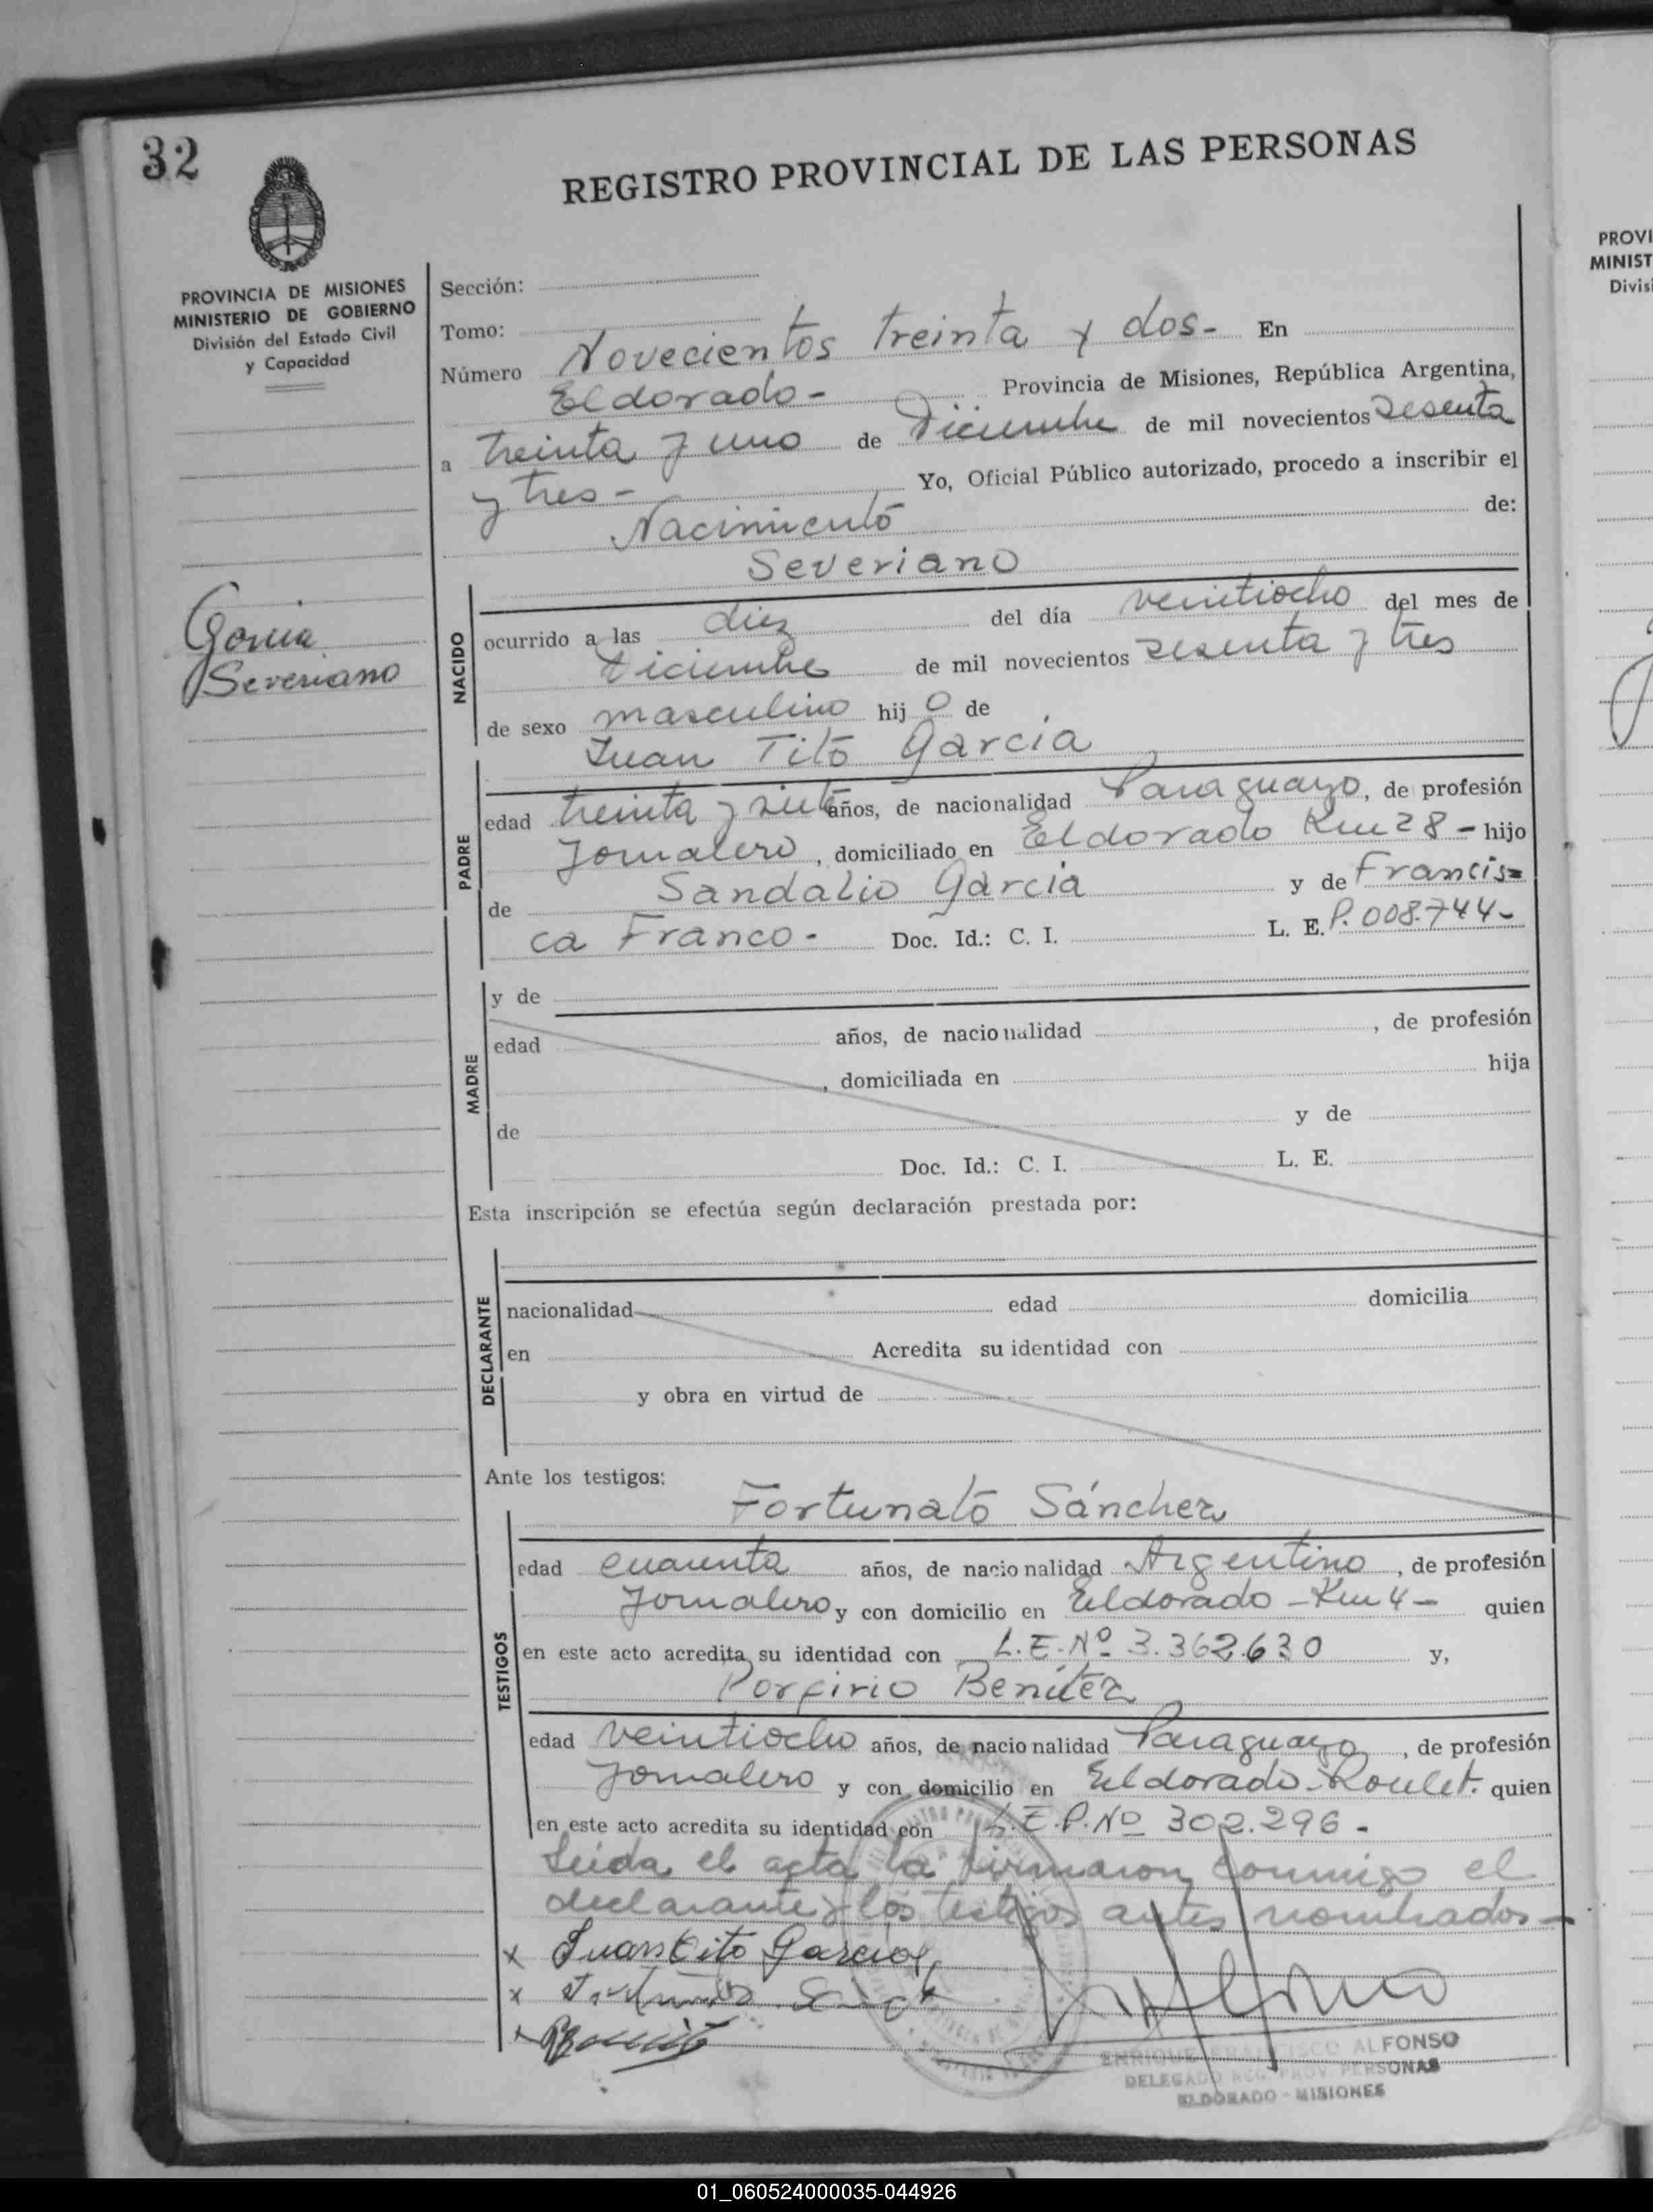 32
REGISTRO PROVINCIAL DE LAS PERSONAS
PROVINCIA DE MISIONES
MINISTERIO DE GOBIERNO
División del Estado Civil
y Capacidad
Sección:
Tomo:
Número Novecientos treinta y dos- En
Eldorado- Provincia de Misiones, República Argentina,
a treinta y uno de Diciembre de mil novecientos sesenta
y tres- Yo, Oficial Público autorizado, procedo a inscribir el
Nacimiento de:
Severiano
Garcia
Severiano
NACIDO
ocurrido a las diez del día veintiocho del mes de
diciembre de mil novecientos sesenta y tres
de sexo masculino hij o de
Juan Tito García
PADRE
edad treinta y siete años, de nacionalidad Paraguayo, de profesión
Jornalero, domiciliado en Eldorado Km 28- hijo
de Sandalio García y de Francis=
ca Franco- Doc. Id.: C. I. L. E. P. 008.744-
MADRE
y de
edad años, de nacionalidad , de profesión
, domiciliada en hija
de y de
Doc. Id.: C. I. L. E.
Esta inscripción se efectúa según declaración prestada por:
DECLARANTE
nacionalidad edad domicilia
en Acredita su identidad con
y obra en virtud de
Ante los testigos:
Fortunato Sánchez
TESTIGOS
edad cuarenta años, de nacionalidad Argentino, de profesión
Jornalero y con domicilio en Eldorado -Km 4- quien
en este acto acredita su identidad con L.E.Nº 3.362.630 y,
Porfirio Benítez
edad veintiocho años, de nacionalidad Paraguayo, de profesión
Jornalero y con domicilio en Eldorado-Roulet. quien
en este acto acredita su identidad con L.E.P.Nº 302.296.
Leida el acta la firmaron conmigo el
declarante y los testigos antes nombrados-
x Juan Tito Garcia
x
x
ENRIQUE FRANCISCO ALFONSO
DELEGADO REG. PROV. PERSONAS
ELDORADO - MISIONES
PROVI
MINIST
Divisi
01_060524000035-044926